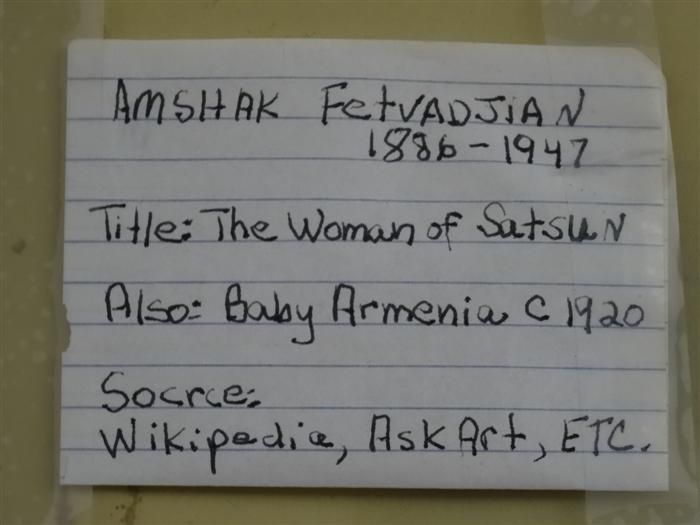 AMSHAK FetVADJIAN
1886-1947
Title: The Woman of SatsuN
Also: Baby Armenia C 1920
Socrce:
Wikipedia, AskArt, ETC.